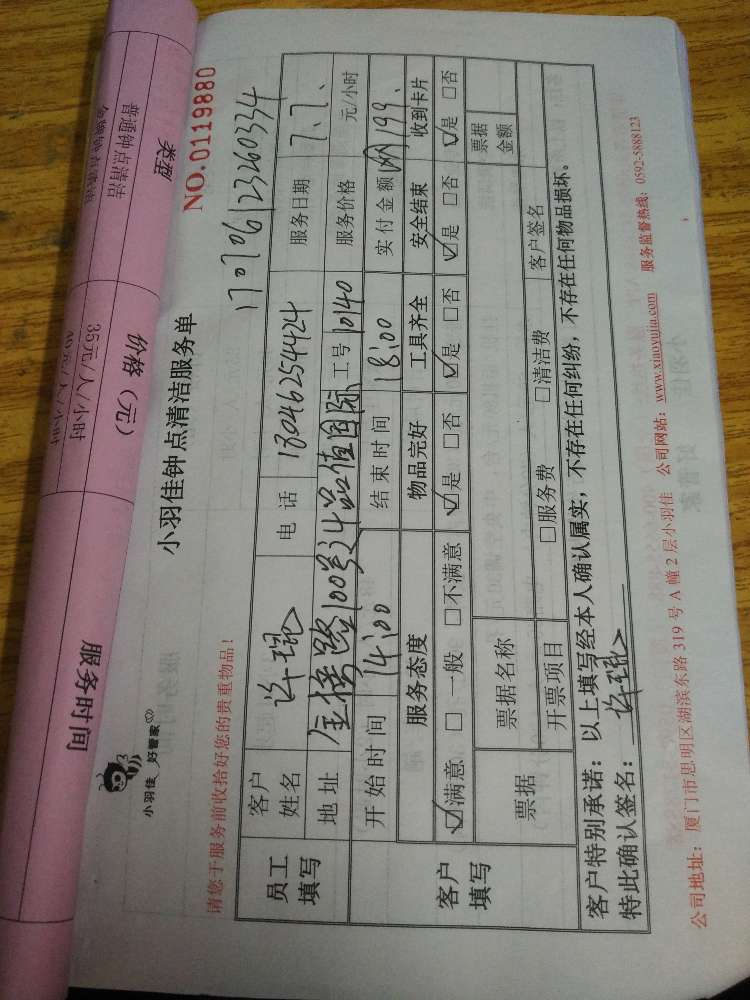 类型 价格（元） 服务时间
普通钟点清洁 35元/人/小时
小羽佳 好管家
小羽佳钟点清洁服务单
NO.0119880
请您于服务前收拾好您的贵重物品！
170706123260334
员工填写
客户姓名 许琨 电话 18046254424 服务日期 7.7、
地址 金榜路100号 品值国际 工号 10140 服务价格 元/小时
开始时间 14:00 结束时间 18:00 实付金额 199、
客户填写
服务态度 物品完好 工具齐全 安全结束 收到卡片
☑满意 □一般 □不满意 ☑是 □否 ☑是 □否 ☑是 □否 ☑是 □否
票据 票据名称 票据金额
开票项目 □服务费 □清洁费 客户签名
客户特别承诺：以上填写经本人确认属实，不存在任何纠纷，不存在任何物品损坏。
特此确认签名：许琨
公司地址：厦门市思明区湖滨东路319号A幢2层小羽佳 公司网站：www.xiaoyujia.com 服务监督热线：0592-5888123